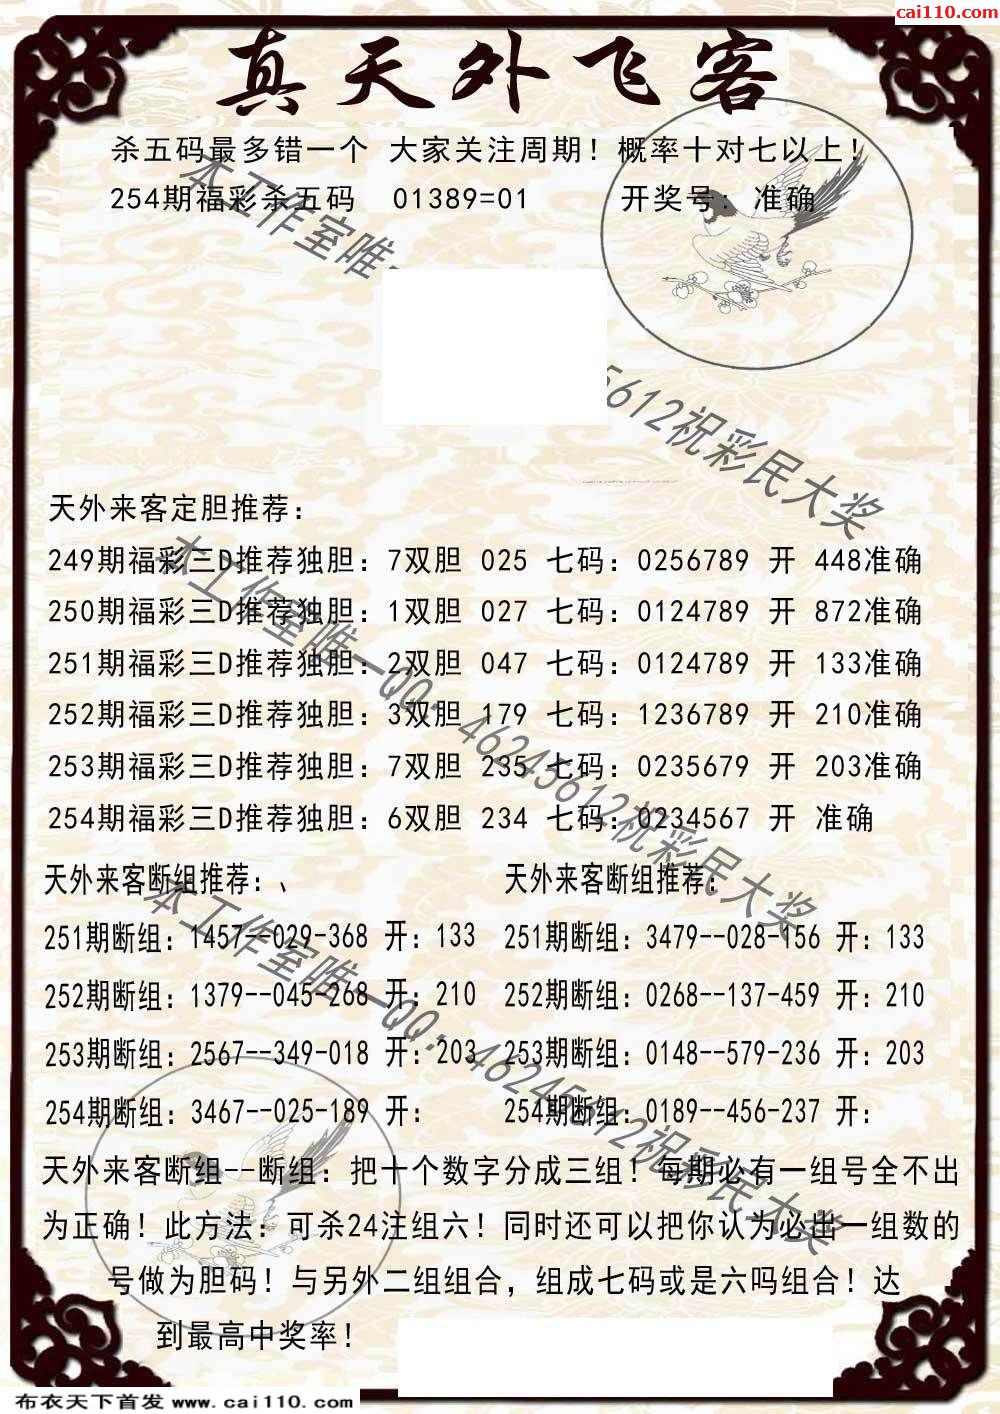 cai110.com
真天外飞客
杀五码最多错一个 大家关注周期！概率十对七以上！
254期福彩杀五码 01389=01 开奖号: 准确
本工作室唯一
5612祝彩民大奖
天外来客定胆推荐：
249期福彩三D推荐独胆：7双胆 025 七码：0256789 开 448准确
250期福彩三D推荐独胆：1双胆 027 七码：0124789 开 872准确
251期福彩三D推荐独胆：2双胆 047 七码：0124789 开 133准确
252期福彩三D推荐独胆：3双胆 179 七码：1236789 开 210准确
253期福彩三D推荐独胆：7双胆 235 七码：0235679 开 203准确
254期福彩三D推荐独胆：6双胆 234 七码：0234567 开 准确
本工作室唯一QQ：46245612祝彩民大奖
天外来客断组推荐：、 天外来客断组推荐：
251期断组：1457--029-368 开：133 251期断组：3479--028-156 开：133
252期断组：1379--045-268 开：210 252期断组：0268--137-459 开：210
253期断组：2567--349-018 开：203 253期断组：0148--579-236 开：203
254期断组：3467--025-189 开： 254期断组：0189--456-237 开：
本工作室唯一QQ：46245612祝彩民大奖
天外来客断组--断组：把十个数字分成三组！每期必有一组号全不出
为正确！此方法：可杀24注组六！同时还可以把你认为必出一组数的
号做为胆码！与另外二组组合，组成七码或是六吗组合！达
到最高中奖率！
布衣天下首发 www.cai110.com